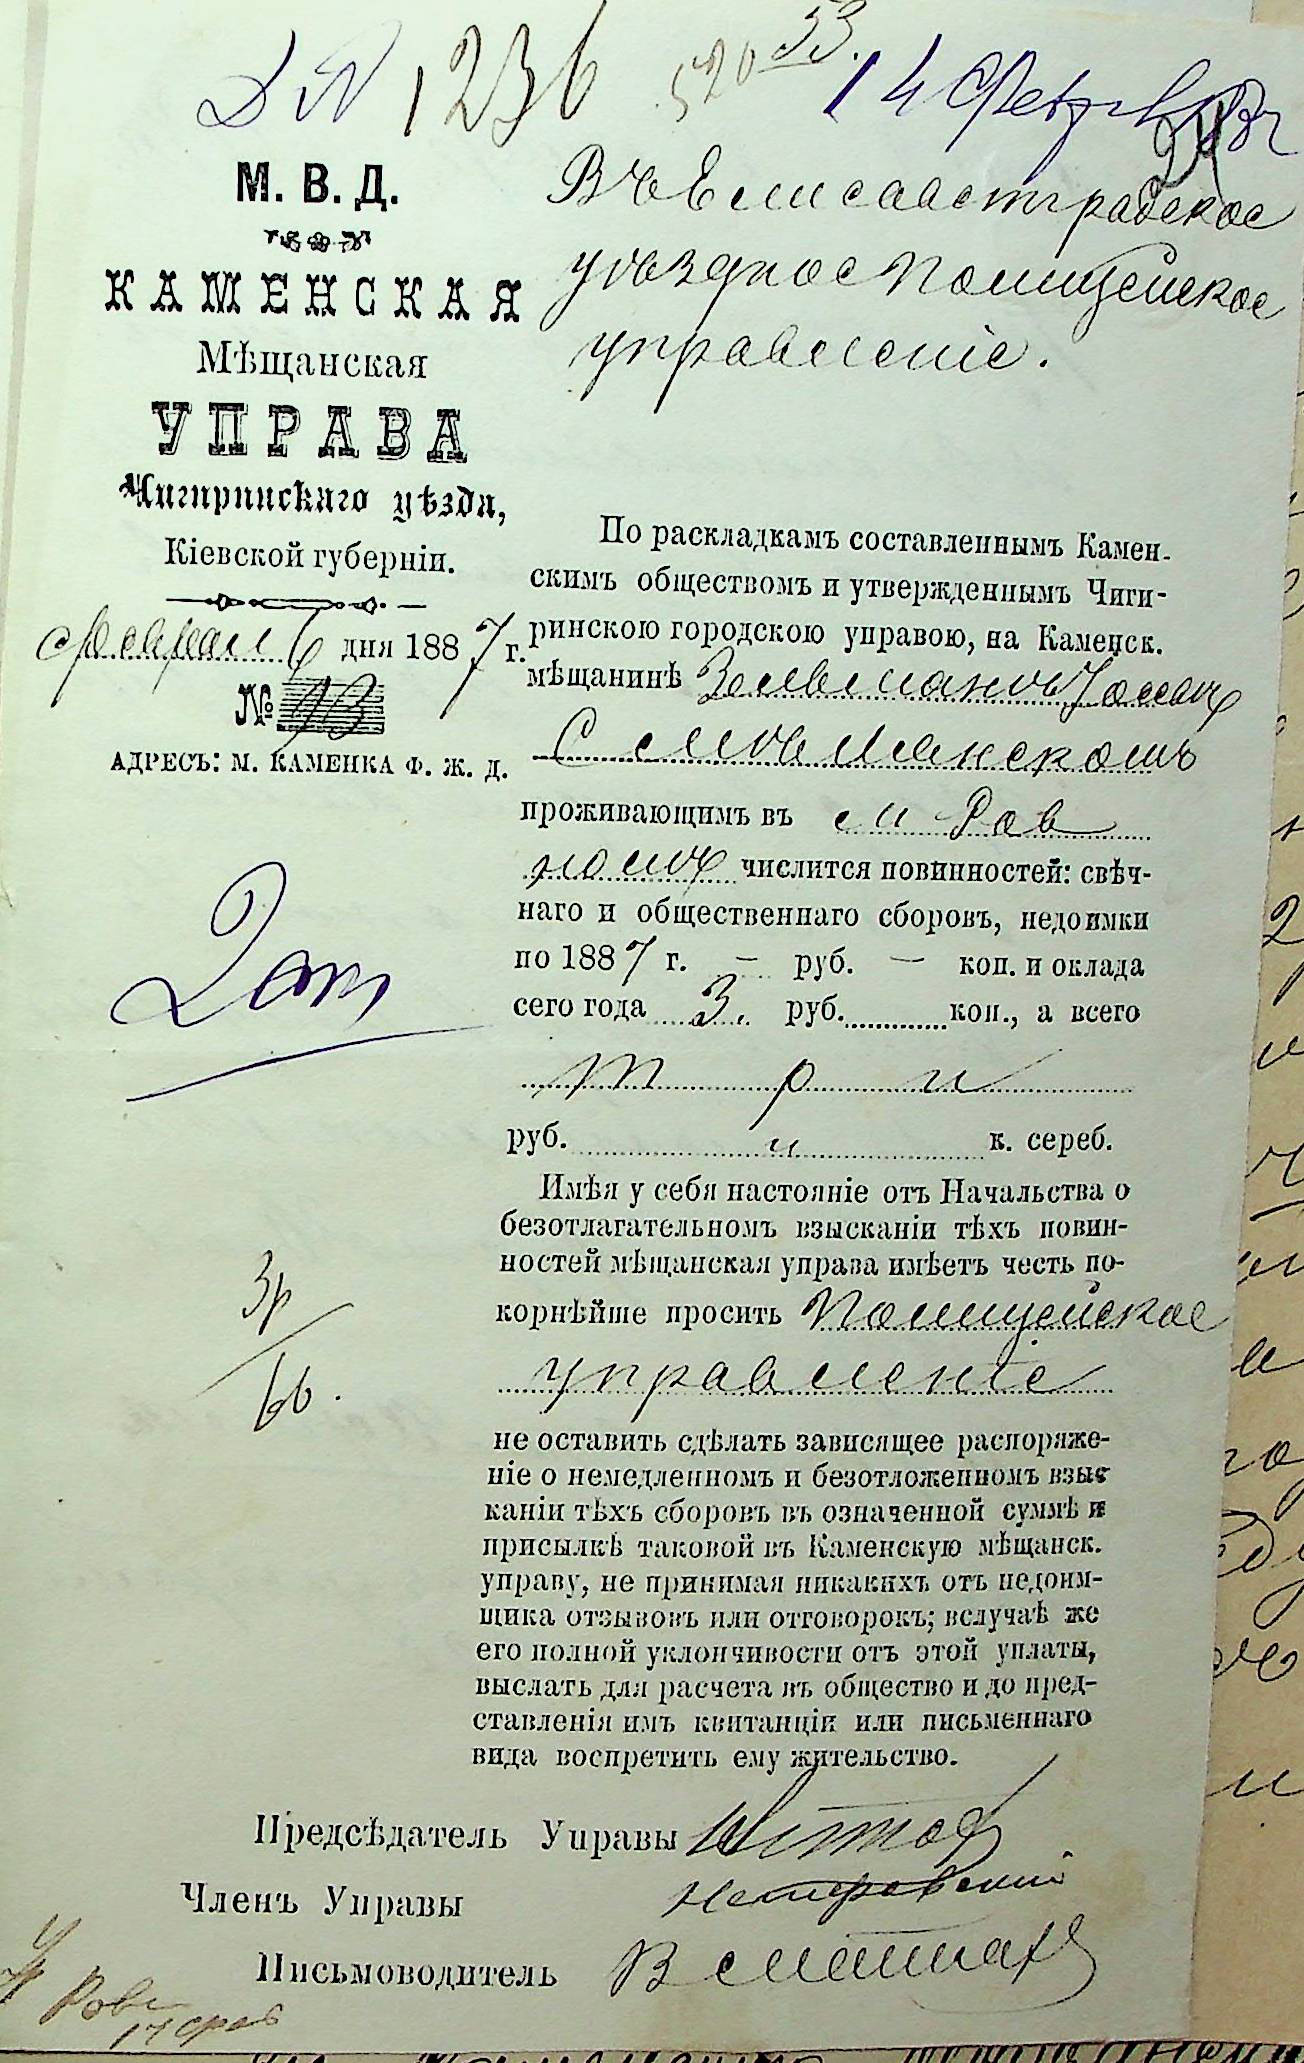 № 1236
14 Феврал
24
М. В. Д.
КАМЕНСКАЯ
Мѣщанская
УПРАВА
Чигиринскаго уѣзда,
Кіевской губерніи.
Февраля 6 дня 1887 г.
№ 93
АДРЕСЪ: М. КАМЕНКА Ф. Ж. Д.
Въ Елисаветградское
уѣздное Полицейское
управленіе.
По раскладкамъ составленнымъ Камен-
скимъ обществомъ и утвержденнымъ Чиги-
ринскою городскою управою, на Каменск.
мѣщанинѣ
проживающимъ въ м Ров
номъ числится повинностей: свѣч-
наго и общественнаго сборовъ, недоимки
по 1887 г. — руб. — коп. и оклада
сего года 3. руб. коп., а всего
три
руб. и к. сереб.
Имѣя у себя настояніе отъ Начальства о
безотлагательномъ взысканіи тѣхъ повин-
ностей мѣщанская управа имѣетъ честь по-
корнѣйше просить Полицейское
управленіе
не оставить сдѣлать зависящее распоряже-
ніе о немедленномъ и безотложенномъ взыс
каніи тѣхъ сборовъ въ означенной суммѣ и
присылкѣ таковой въ Каменскую мѣщанск.
управу, не принимая никакихъ отъ недоим-
щика отзывовъ или отговорокъ; вслучаѣ же
его полной уклончивости отъ этой уплаты,
выслать для расчета въ общество и до пред-
ставленія имъ квитанціи или письменнаго
вида воспретить ему жительство.
3р
Предсѣдатель Управы
Членъ Управы
Письмоводитель
17 фев